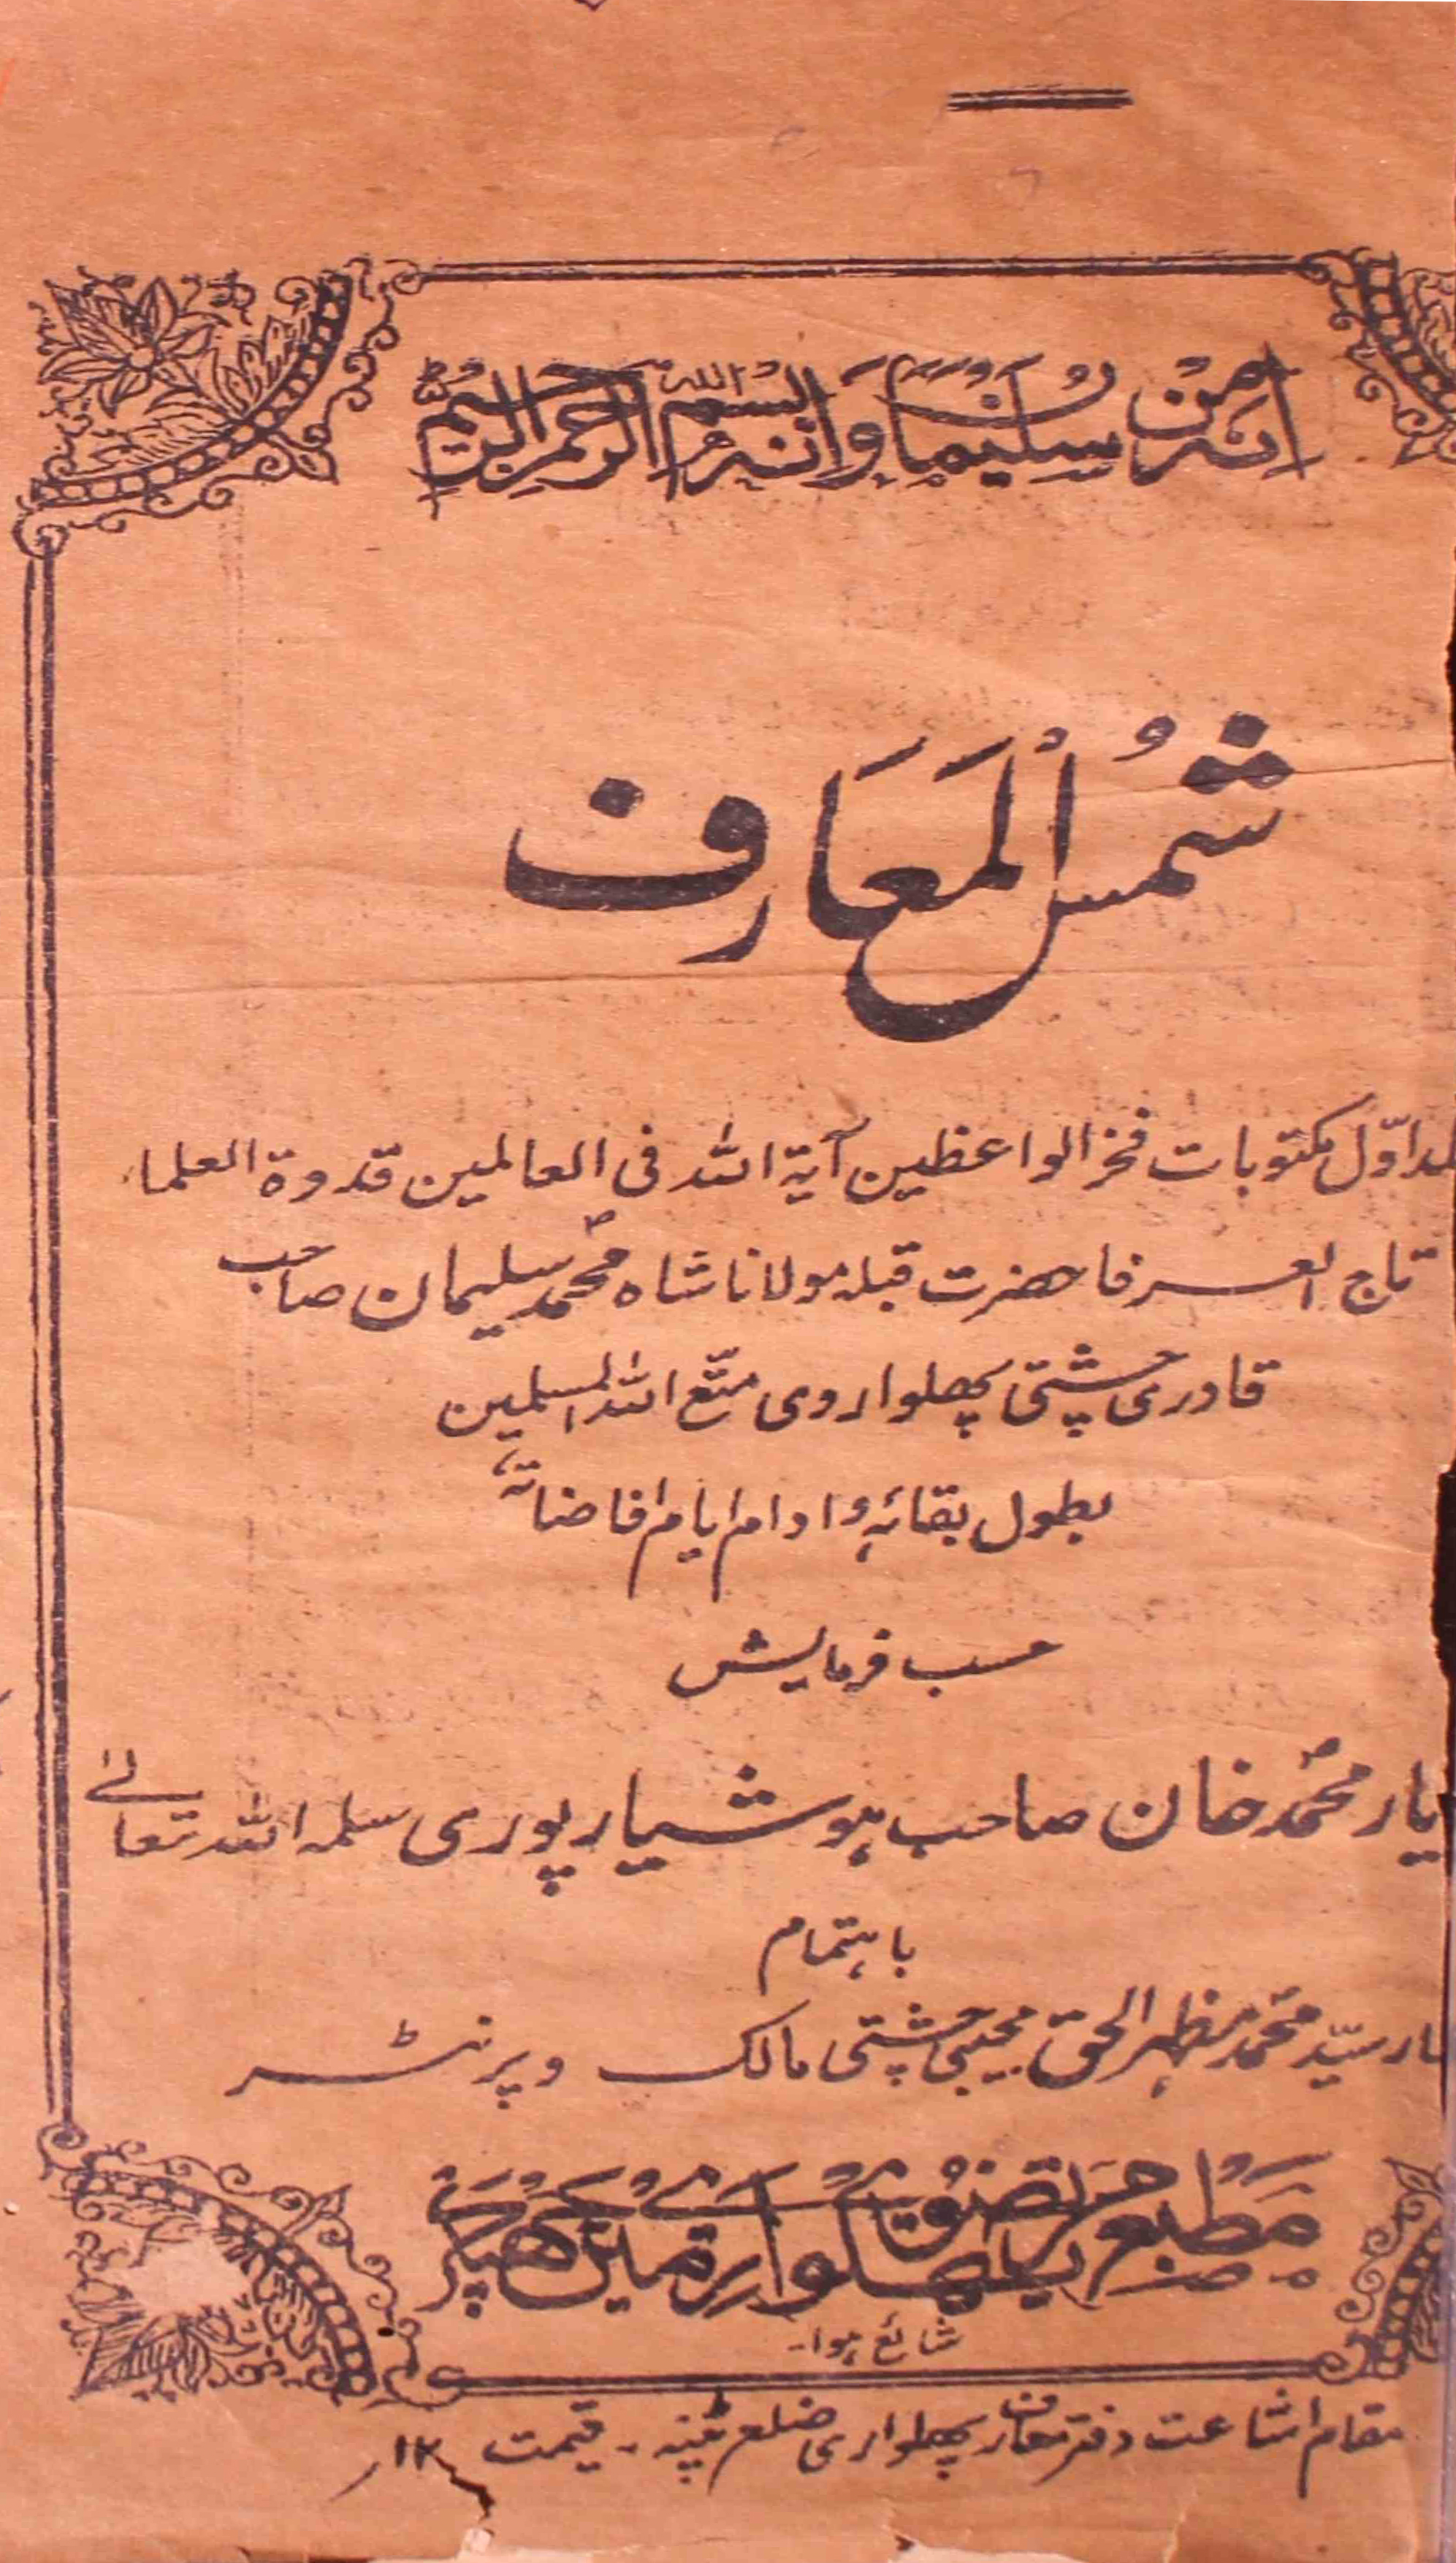 اِنَّهٗ مِنْ سُلَیْمَانَ وَاِنَّهٗ بِسْمِ اللهِ الرَّحْمٰنِ الرَّحِیْمِ
شمسُ المَعَارف
اوّل مکتوبات فخر الواعظین آیۃ اللہ فی العالمین قدوۃ العلماء
تاج العرفا حضرت قبلہ مولانا شاہ محمدؐ سلیمان صاحب
قادری چشتی پھلواروی متّع اللہ المسلمین
بطول بقائہٖ و ادام ایام افاضاتہٗ
حسب فرمایش
یار محمدؐ خان صاحب ہوشیارپوری سلمہ اللہ تعالےٰ
باہتمام
سیّد محمد مظہر الحق مجیبی چشتی مالک و پرنٹر
مطبع پھلواری میں
شائع ہوا۔
مقام اشاعت دفتر معارف پھلواری ضلع پٹنہ۔ قیمت ۱۲؍